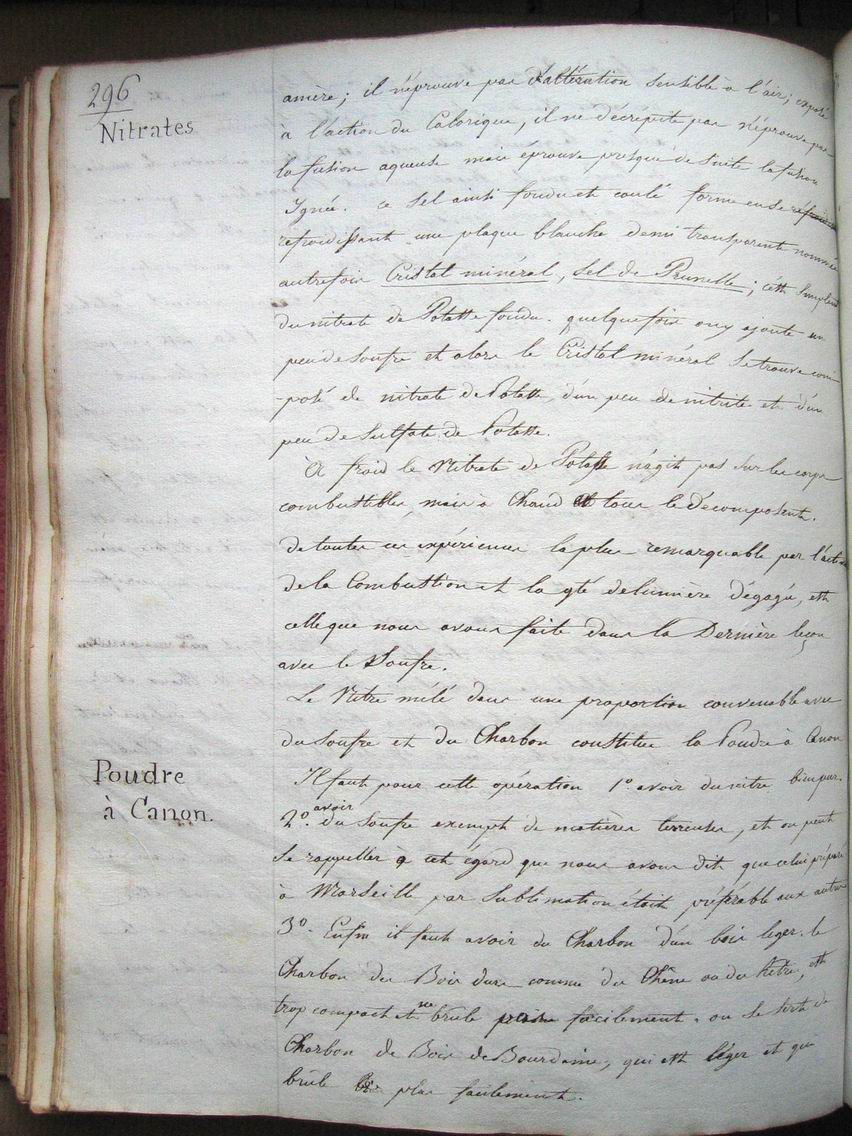 296
Nitrates
amère; il n'éprouve pas d'altération sensible à l'air; exposé
à l'action du Calorique, il ne décrépite pas n'éprouve pas
la fusion aqueuse mais éprouve presque de suite la fusion
Ignée. ce sel ainsi fondu et coulé forme en se
refroidissant une plaque blanche demi transparente nommée
autrefois Cristal minéral, Sel de Prunelle; c'est simplement
du nitrate de Potasse fondu. quelquefois on y ajoute un
peu de soufre et alors le Cristal minéral se trouve com
-posé de nitrate de Potasse, d'un peu de nitrite et d'un
peu de Sulfate de Potasse.
A froid le Nitrate de Potasse n'agit pas sur les corps
combustibles, mais à Chaud tous le décomposent.
de toutes ces expériences la plus remarquable par l'action
de la Combustion et la qté de lumière dégagée, est
celle que nous avons faite dans la Dernière leçon
avec le Soufre.
Le Nitre mêlé dans une proportion convenable avec
du Soufre et du Charbon constitue la Poudre à Canon
Poudre
à Canon.
Il faut pour cette opération 1° avoir du nitre bien pur.
2° avoir du soufre exempt de matières terreuses, et on peut
se rappeller à cet égard que nous avons dit que celui préparé
à Marseille par Sublimation était préférable aux autres
3°. Enfin il faut avoir du Charbon d'un bois leger. le
Charbon du Bois dur comme du Chêne ou du hêtre, est
trop compact et ne brûle facilement. on se sert de
Charbon de Bois de Bourdaine, qui est léger et qui
brûle plus facilement.